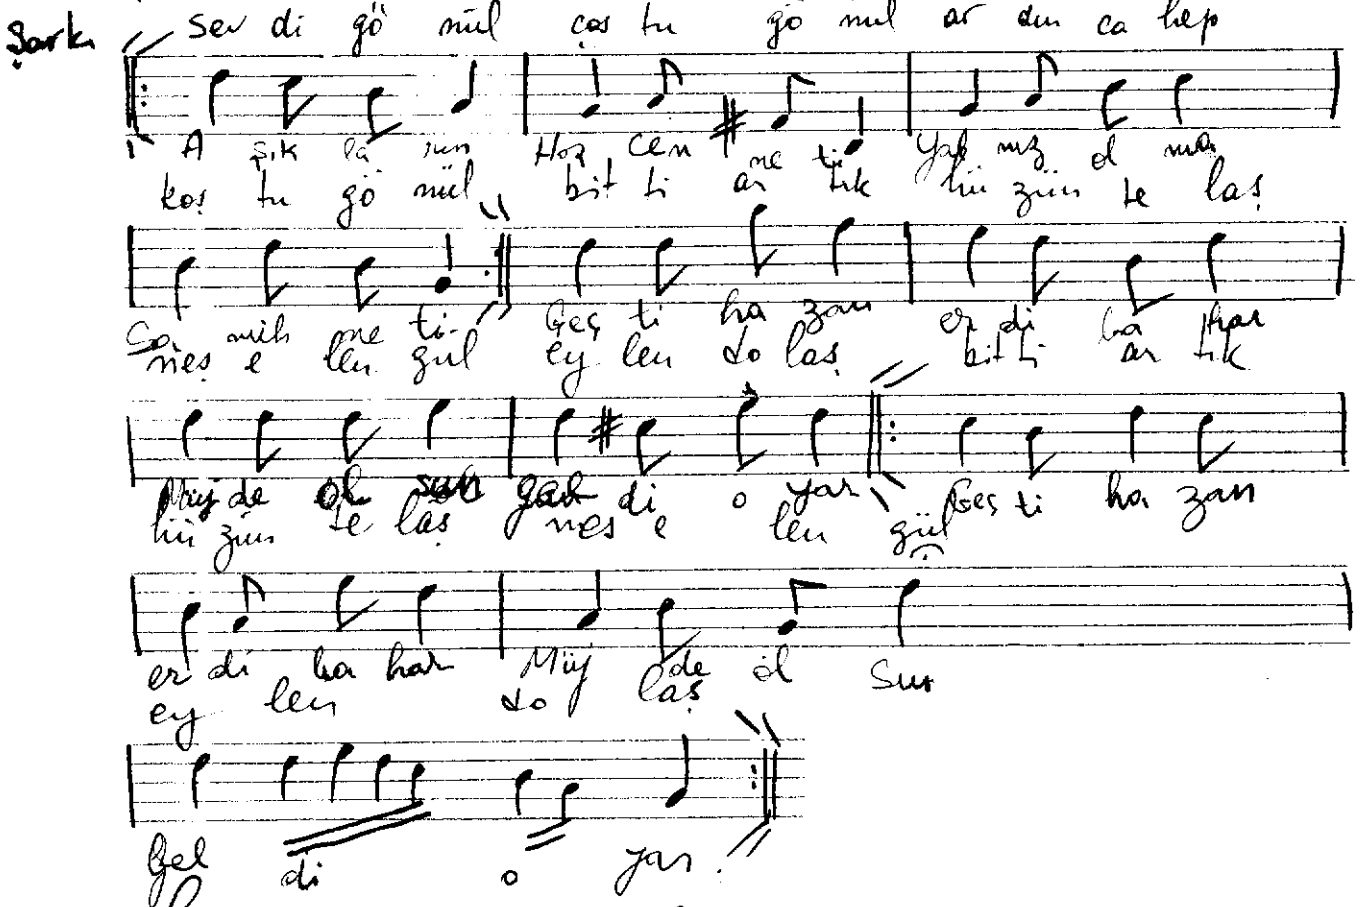 Şarkı Sev di gö nül coş tu gö nül ar dın ca hep
A şık la rın Hoş cen ne ti Yal nız ol ma
koş tu gö nül bit ti ar tık hü zün te laş
mih ne ti Geç ti ha zan er di ba har
neş e len gül ey len do laş bit ti ar tık
Müj de ol sun gel di o yar Geç ti ha zan
hü zün te laş neş e len gül
er di ba har Müj de ol Sun
ey len do laş
Gel di o yar